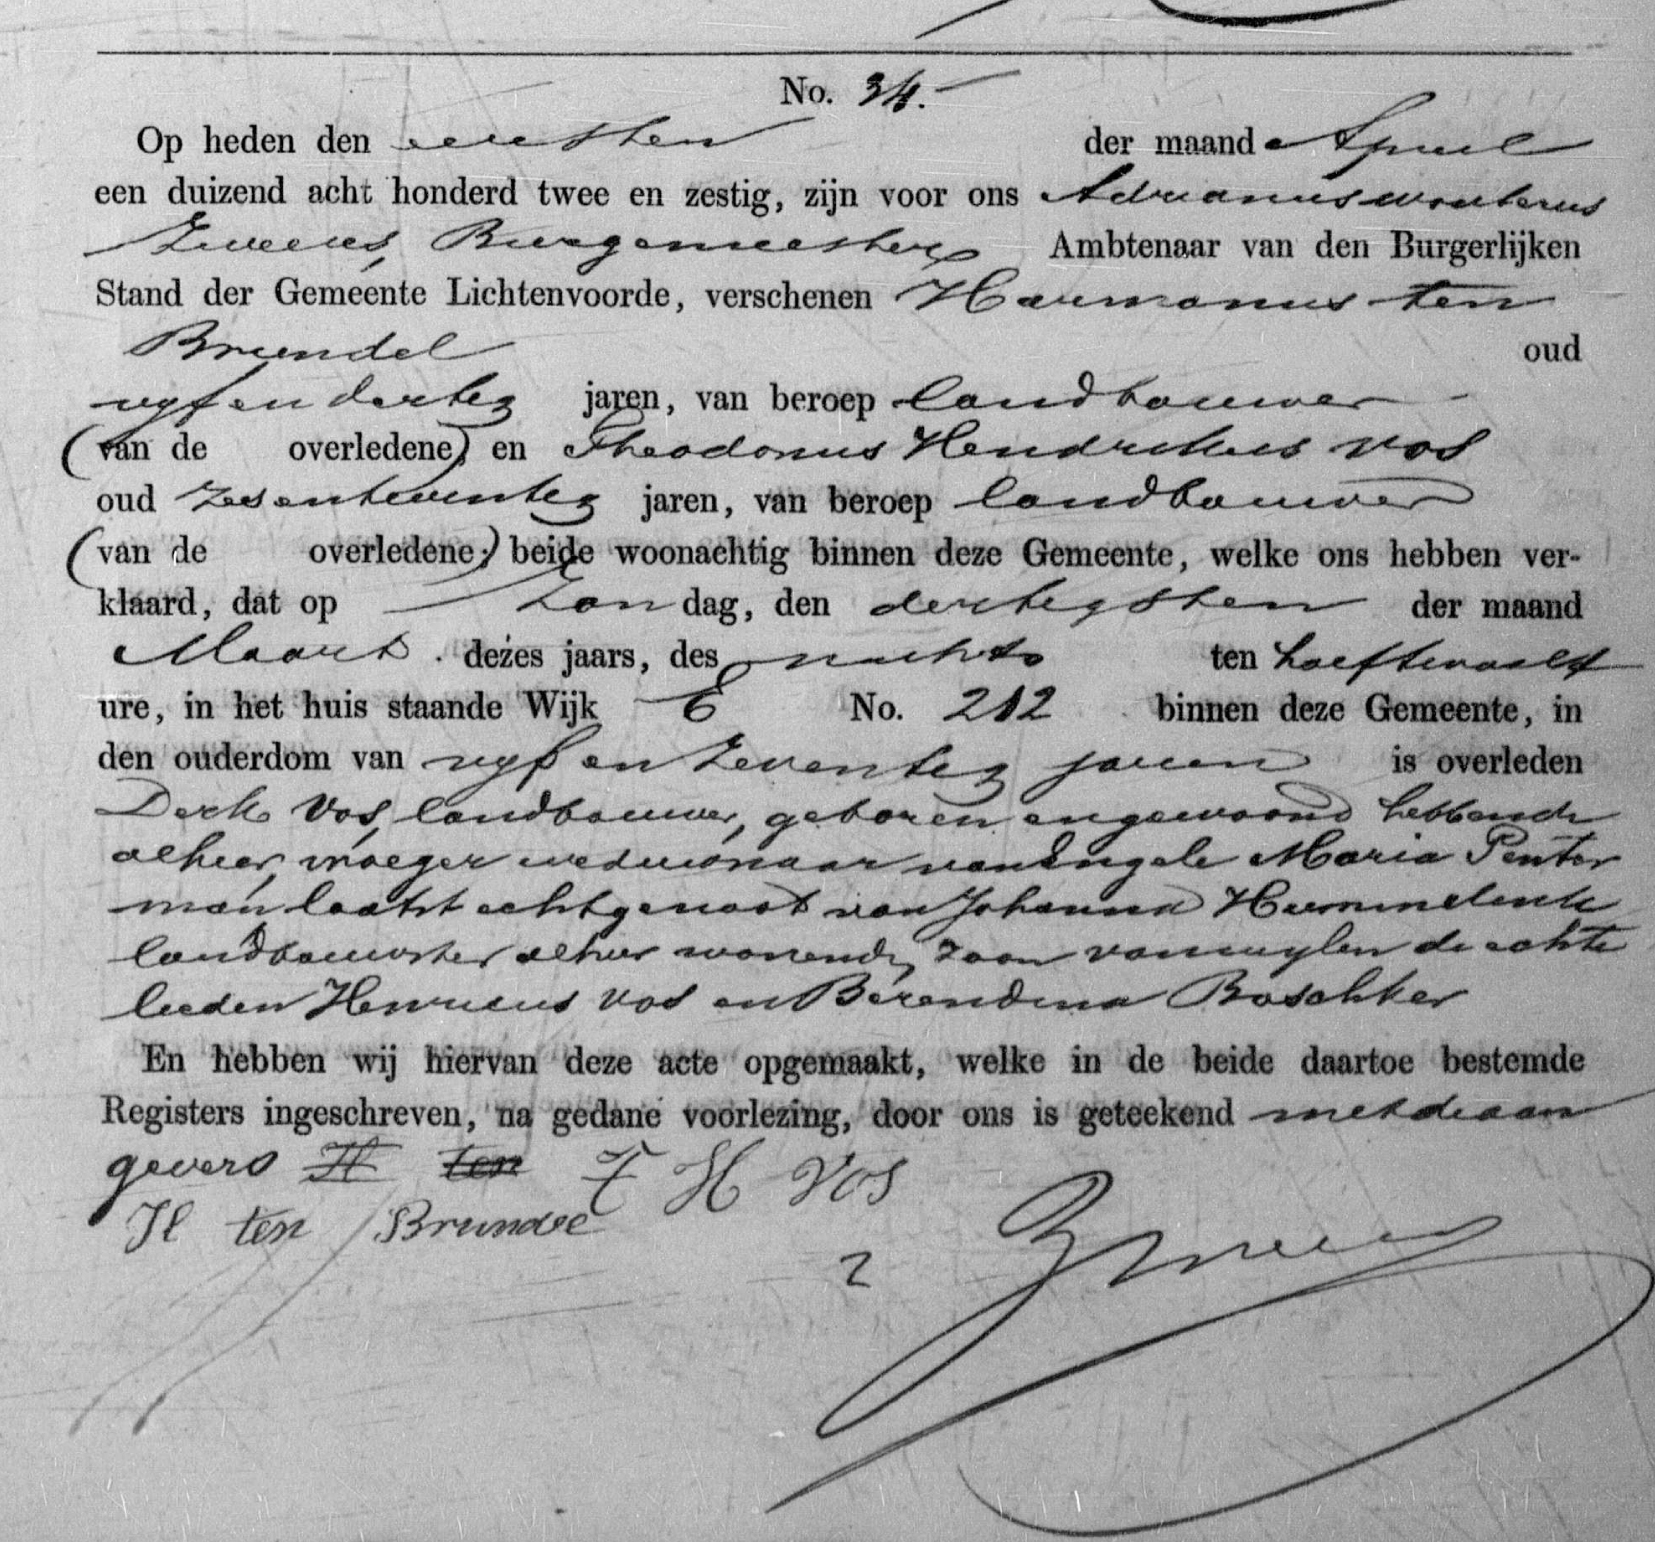 No. 34.
Op heden den eersten der maand April
een duizend acht honderd twee en zestig, zijn voor ons Adrianus Wouterus
Zweers, Burgemeester Ambtenaar van den Burgerlijken
Stand der Gemeente Lichtenvoorde, verschenen Harmanus ten
Brundel oud
vyf en dertig jaren, van beroep landbouwer
(van de overledene) en Theodorus Hendrikus Vos
oud zesentwintig jaren, van beroep landbouwer
(van de overledene;) beide woonachtig binnen deze Gemeente, welke ons hebben ver-
klaard, dat op Zondag, den dertigsten der maand
Maart dezes jaars, des nachts ten half twaalf
ure, in het huis staande Wijk E No. 212 binnen deze Gemeente, in
den ouderdom van vyf en zeventig jaren is overleden
Derk Vos, landbouwer, geboren en gewoond hebbende
alhier, vroeger weduwnaar van Engele Maria Penter
man laatst echtgenoot van Johanna Hummelink
landbouwster alhier wonende, zoon van wylen de echte
lieden Henricus Vos en Berendina Boschker
En hebben wij hiervan deze acte opgemaakt, welke in de beide daartoe bestemde
Registers ingeschreven, na gedane voorlezing, door ons is geteekend met de aan
gevers H ten T H Vos
H ten Brundel
Zweers